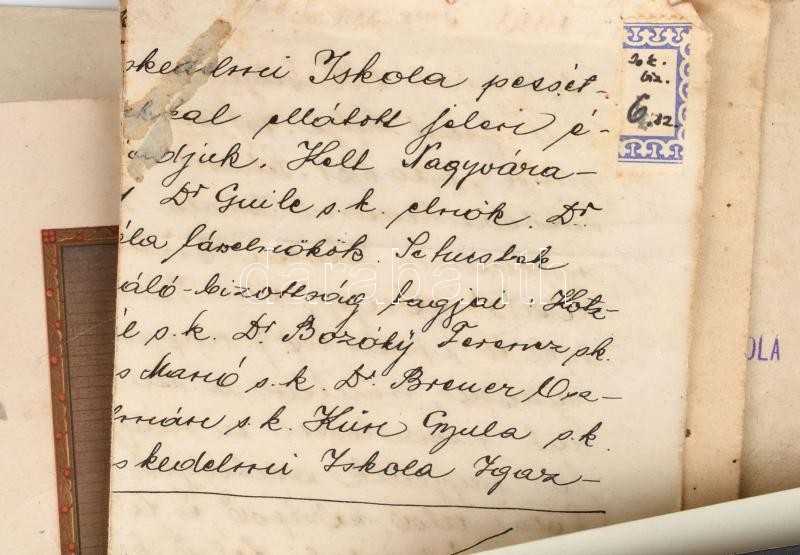 skedelmi Iskola pecsét-
kkal ellátott jelen é-
adjuk. Kelt Nagyvára-
Dr Guile s.k. elnök. Dr.
éla társelnökök.
áló-bizottság tagjai. Hotz
l s.k. Dr. Bozóky Ferencz sk.
s Manó s.k. Dr. Brener
lmán s.k. Kún Gyula s.k.
skedelmi Iskola Igaz-
6.
OLA
darabanth